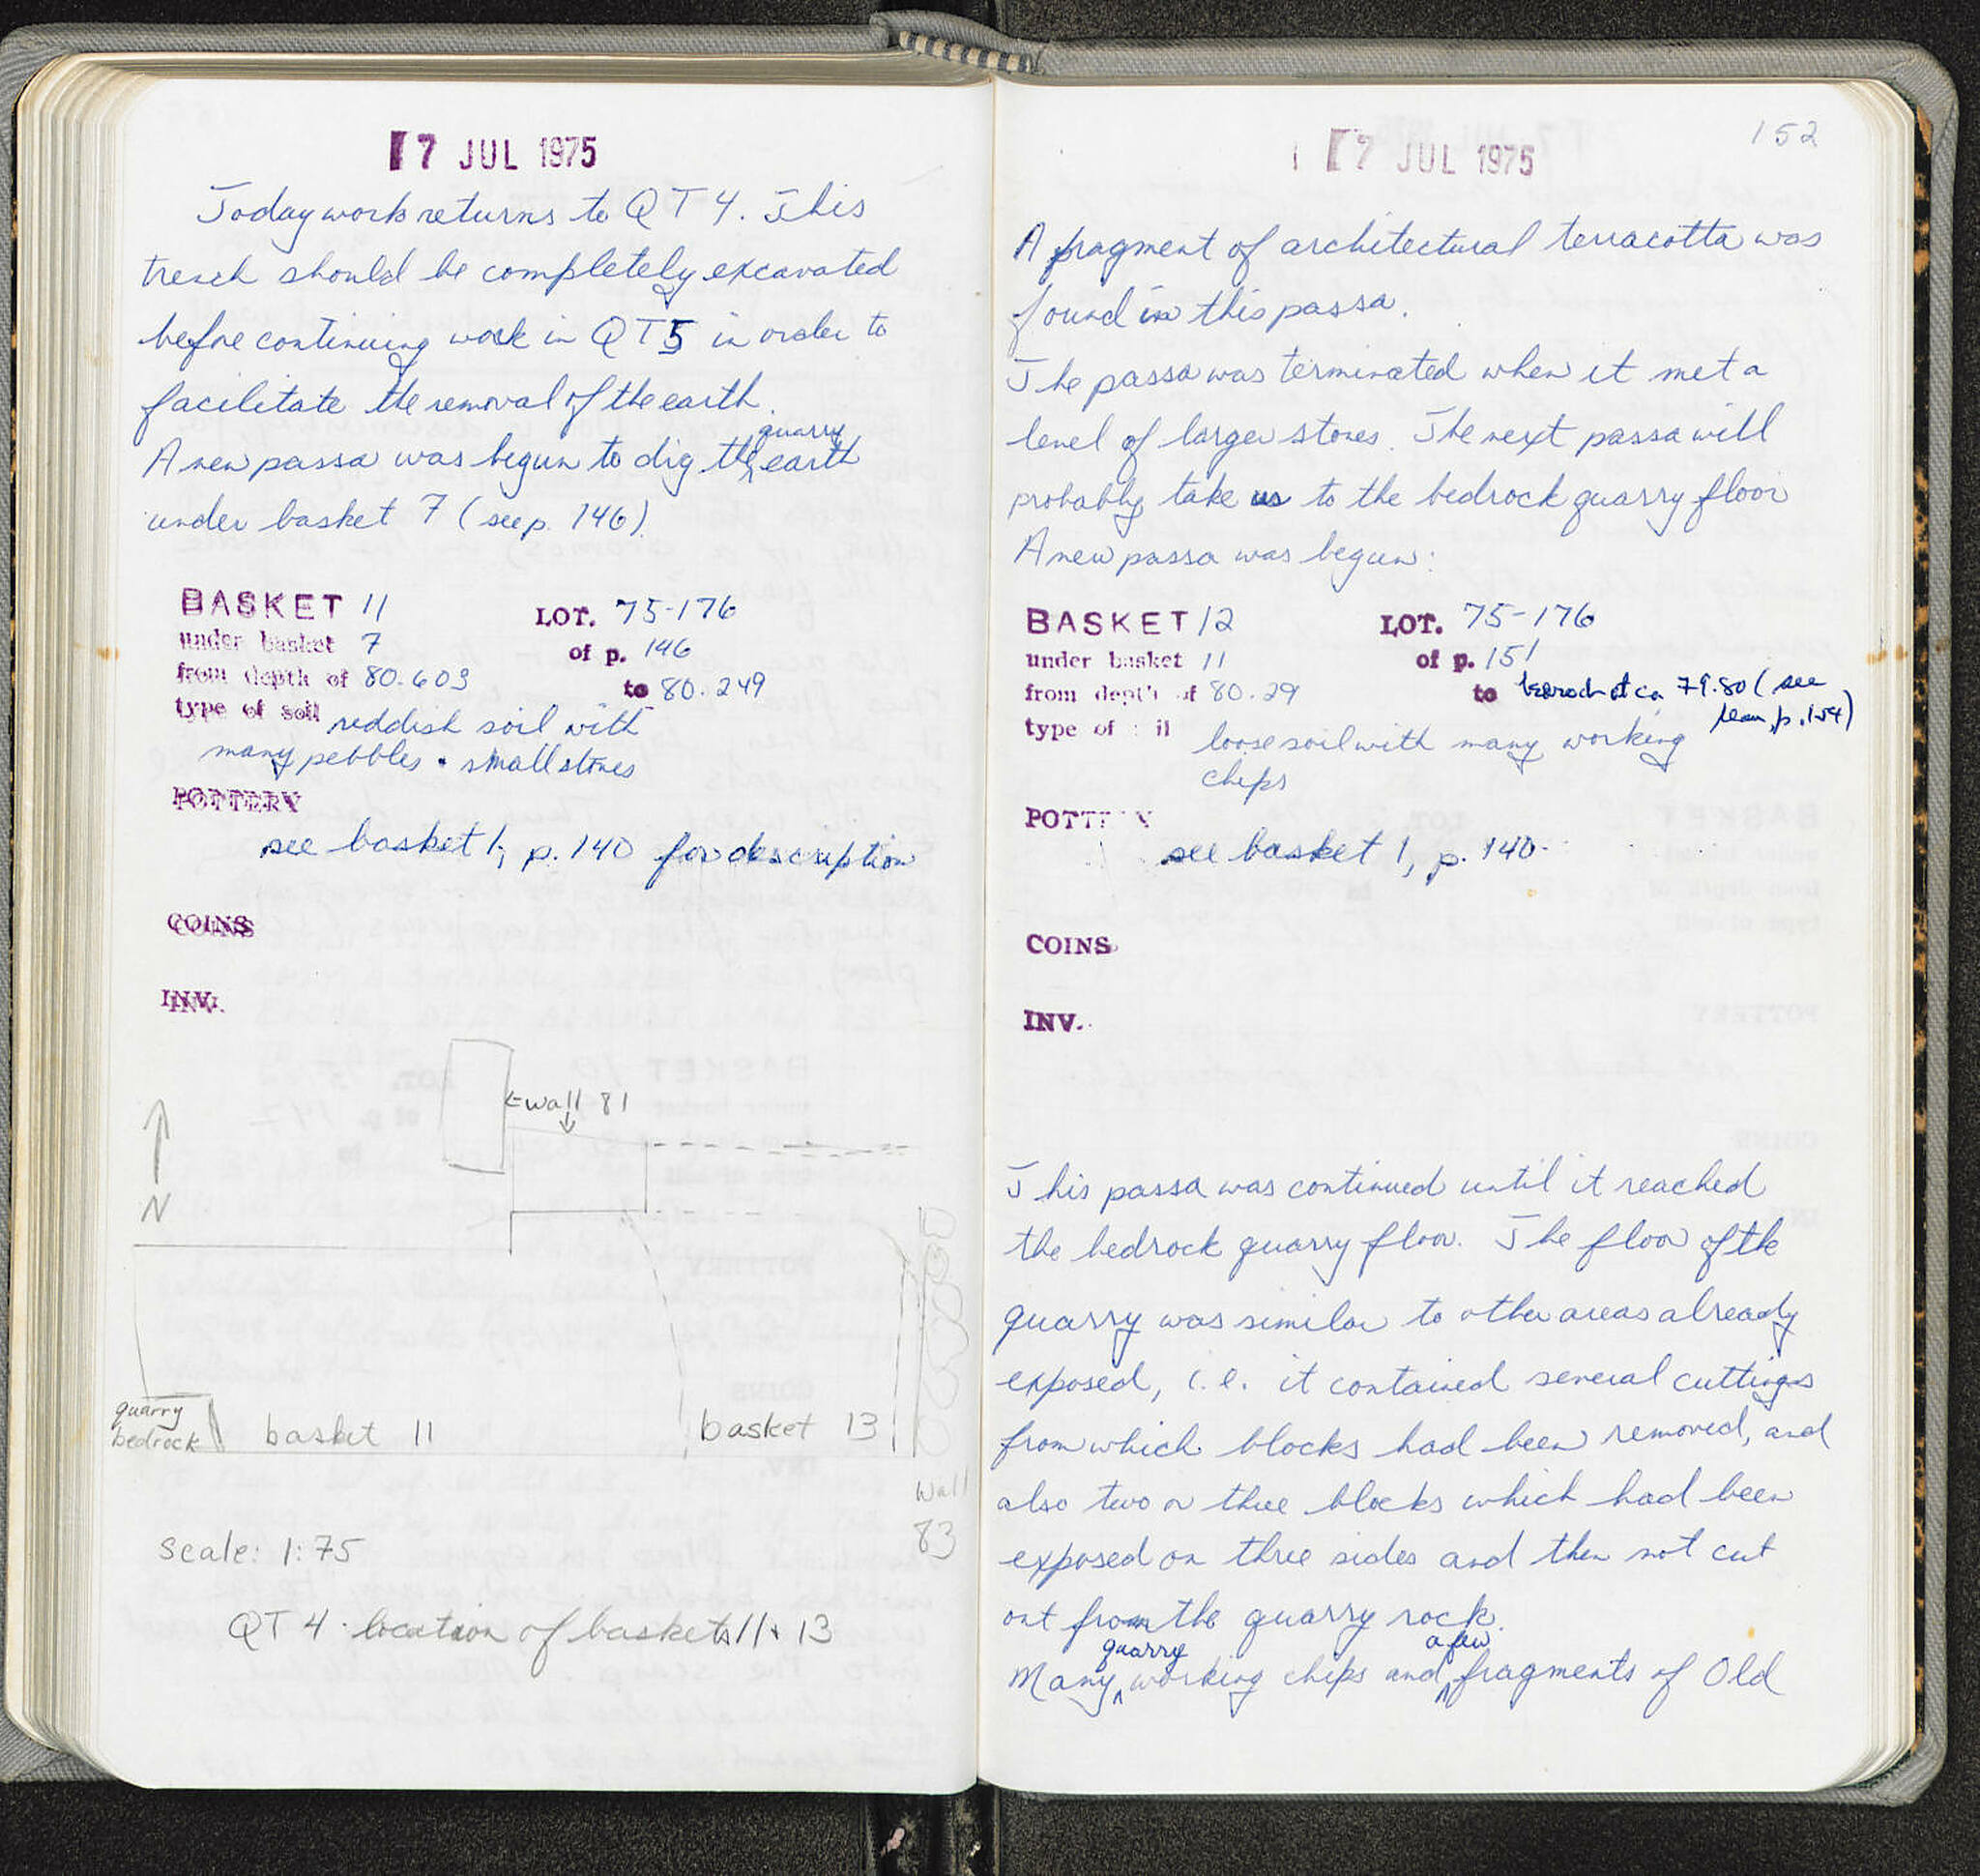 17 JUL 1975
Today work returns to QT 4. This
trench should be completely excavated
before continuing work in QT5 in order to
facilitate the removal of the earth.
A new passa was begun to dig the quarry earth
under basket 7 (see p. 146).
BASKET 11 LOT. 75-176
under basket 7 of p. 146
from depth of 80.603 to 80.249
type of soil reddish soil with
many pebbles + small stones
POTTERY
see basket 1, p. 140 for description
COINS
INV.
←wall 81
N
quarry
bedrock
basket 11
basket 13
wall
83
scale: 1:75
QT 4 · location of baskets 11 + 13
152
17 JUL 1975
A fragment of architectural terracotta was
found in this passa.
The passa was terminated when it met a
level of larger stones. The next passa will
probably take us to the bedrock quarry floor
A new passa was begun:
BASKET 12 LOT. 75-176
under basket 11 of p. 151
from depth of 80.29 to bedrock at ca. 79.80 (see
plan, p. 154)
type of soil loose soil with many working
chips
POTTERY
see basket 1, p. 140.
COINS
INV.
This passa was continued until it reached
the bedrock quarry floor. The floor of the
quarry was similar to other areas already
exposed, i.e. it contained several cuttings
from which blocks had been removed, and
also two or three blocks which had been
exposed on three sides and then not cut
out from the quarry rock.
Many quarry working chips and a few fragments of Old